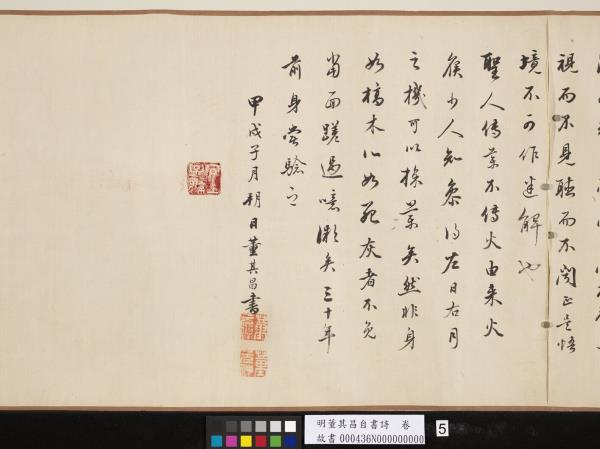 視而不見聽而不聞正是悟
境不可作迷解也
聖人傳藥不傳火由来火
候少人知得左日右月
之機可以採藥矣然非身
如槁木心如死灰者不免
當面蹉過噫矣三十年
前身嘗驗之
甲戌子月朔日董其昌書
明董其昌自書詩 卷
故書 000436N000000000
5